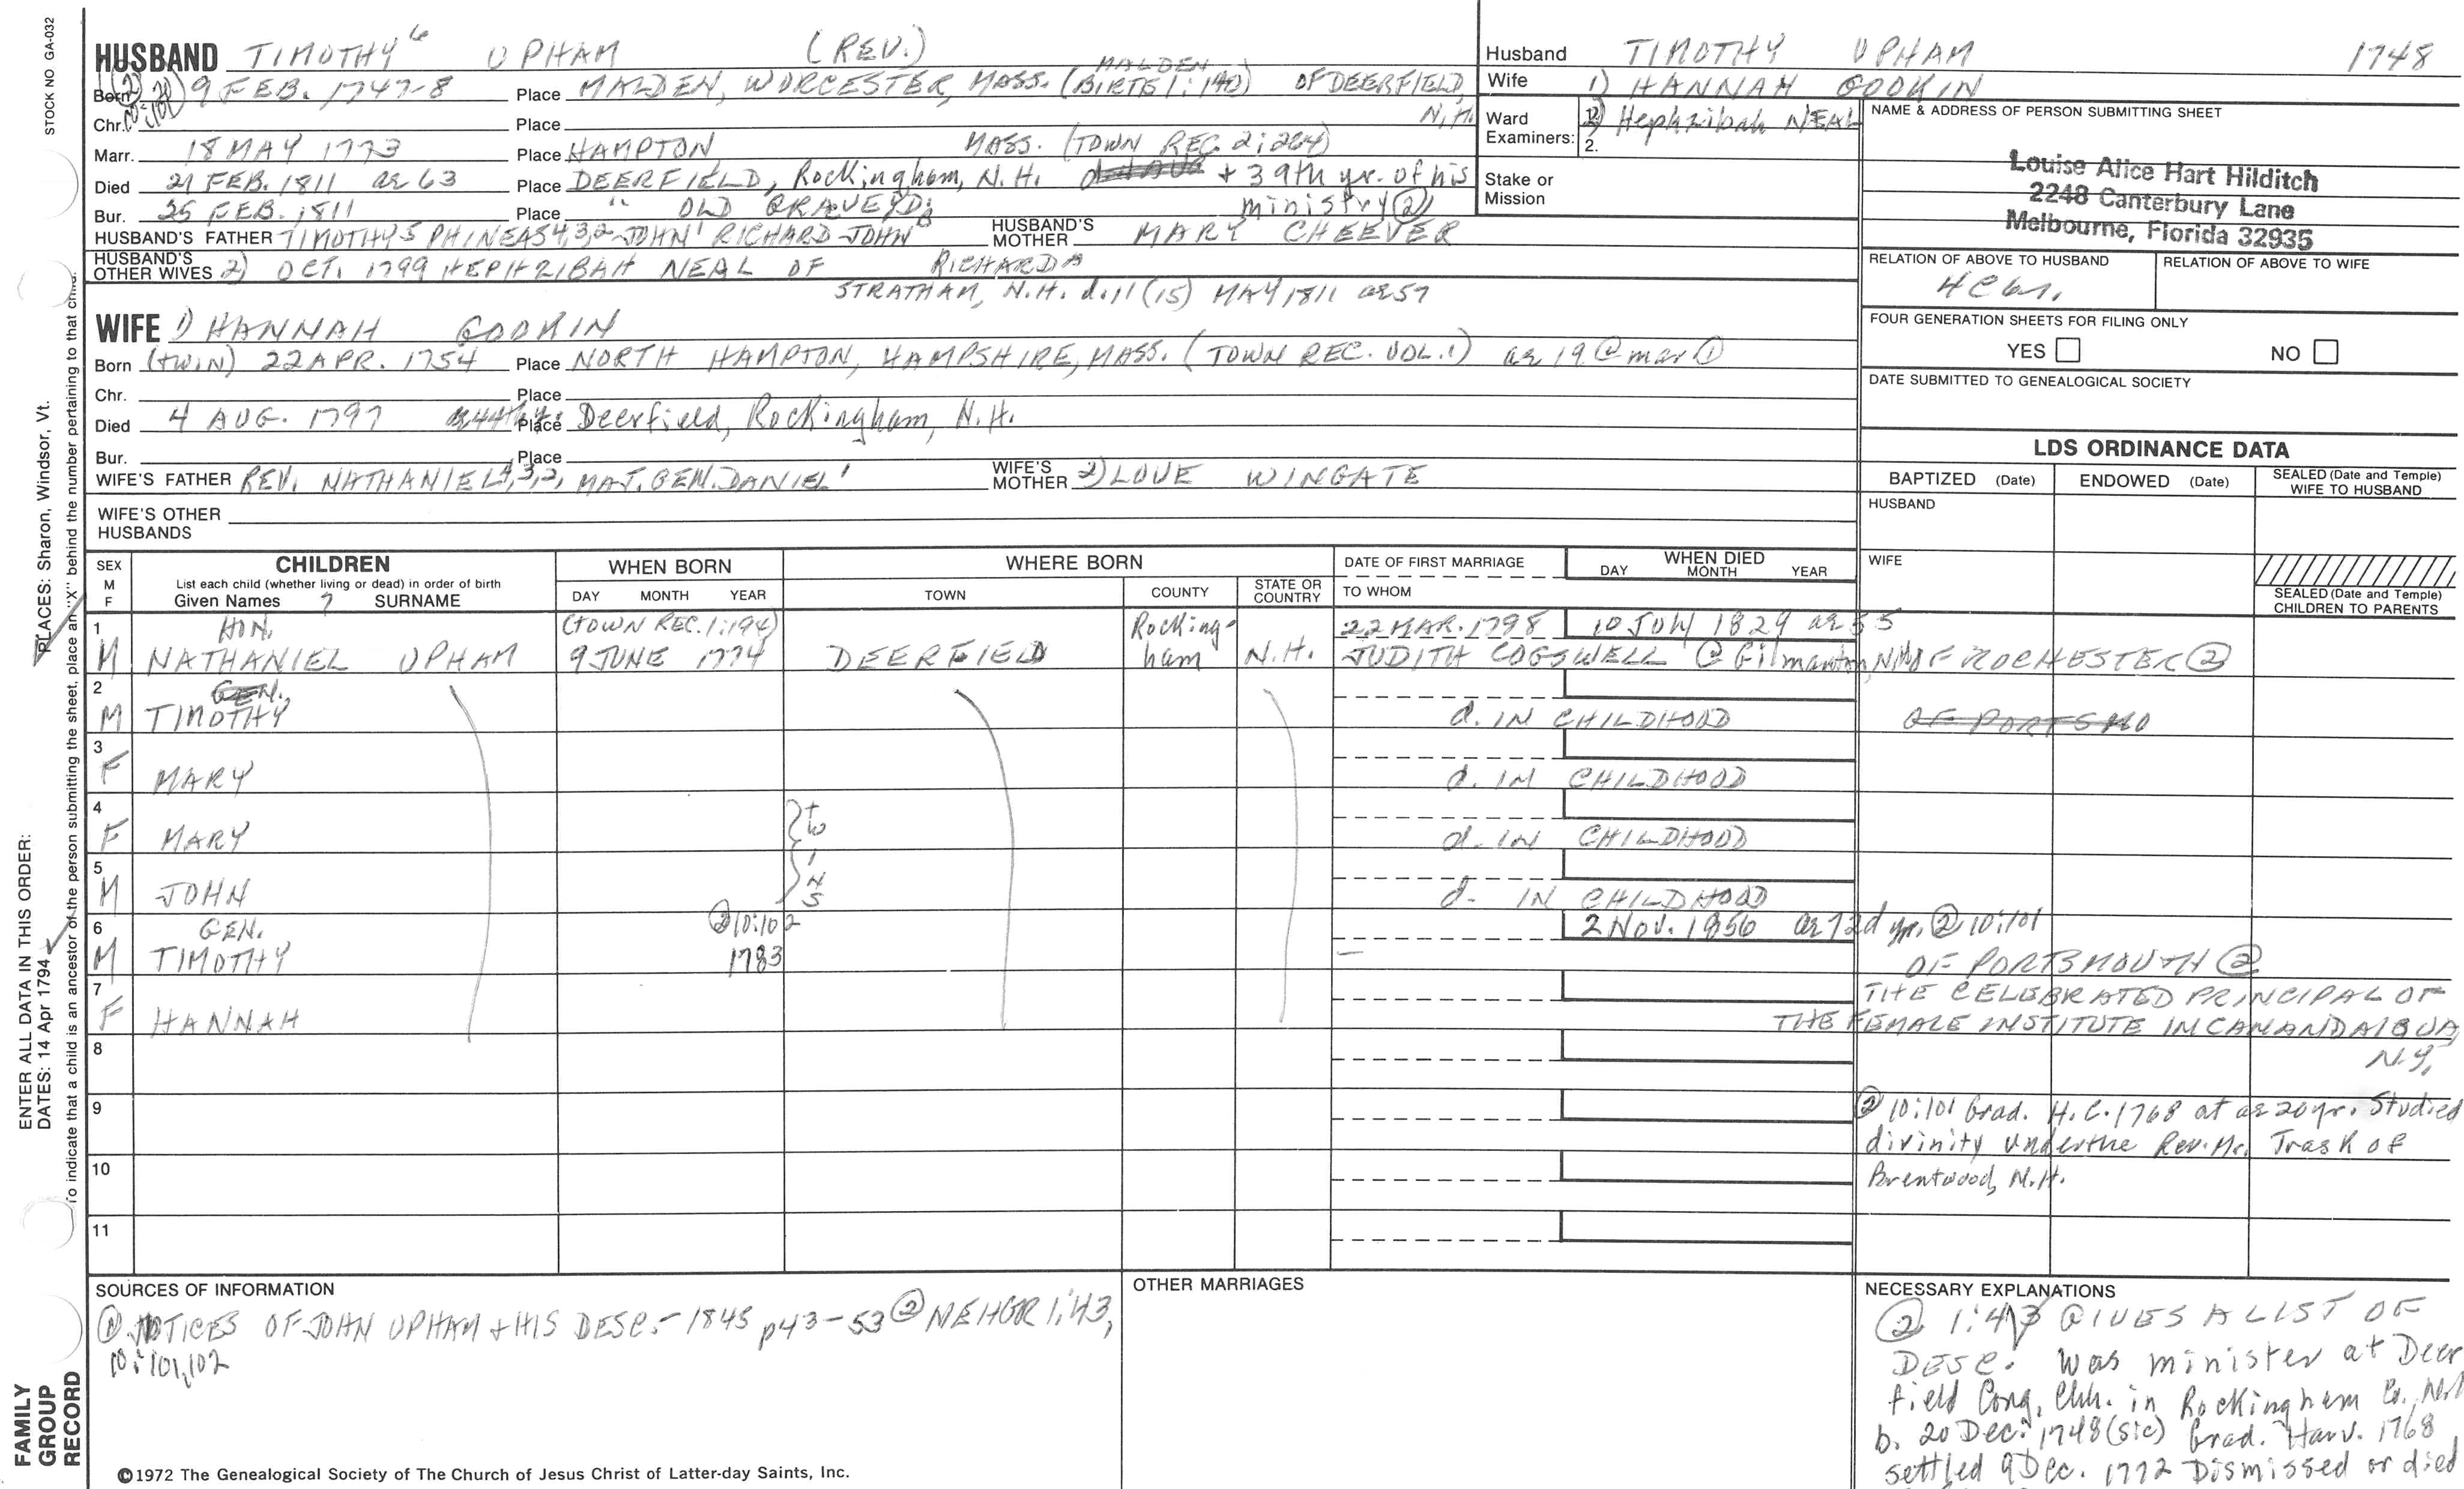 STOCK NO GA-032
HUSBAND TIMOTHY 6 UPHAM (REV.)
Born (2) 20 9 FEB. 1747-8 Place MALDEN, WORCESTER, MASS. (MALDEN BIRTHS 1:140) OF DEERFIELD, N.H.
10:101
Chr. Place
Marr. 18 MAY 1773 Place HAMPTON MASS. (TOWN REC. 2:264)
Died 21 FEB. 1811 ae 63 Place DEERFIELD, Rockingham, N.H. + 39th yr. of his ministry (2)
Bur. 25 FEB. 1811 Place " OLD GRAVEYD.
HUSBAND'S FATHER TIMOTHY 5 PHINEAS 4,3,2 JOHN 1 RICHARD JOHN B RICHARD A
HUSBAND'S MOTHER MARY CHEEVER
HUSBAND'S OTHER WIVES 2) OCT. 1799 HEPHZIBAH NEAL OF
STRATHAM, N.H. d. 11 (15) MAY 1811 ae 57
WIFE 1) HANNAH GOOKIN
Born (TWIN) 22 APR. 1754 Place NORTH HAMPTON, HAMPSHIRE, MASS. (TOWN REC. VOL. 1) ae 19 @ mar (1)
Chr. Place
Died 4 AUG. 1797 ae 44th yr. Place Deerfield, Rockingham, N.H.
Bur. Place
WIFE'S FATHER REV. NATHANIEL 4,3,2, MAJ. GEN. DANIEL 1
WIFE'S MOTHER 2) LOVE WINGATE
WIFE'S OTHER HUSBANDS
Husband TIMOTHY UPHAM 1748
Wife 1) HANNAH GOOKIN
Ward Examiners: 1. 2) Hephzibah NEAL
2.
Stake or Mission
NAME & ADDRESS OF PERSON SUBMITTING SHEET
Louise Alice Hart Hilditch
2248 Canterbury Lane
Melbourne, Florida 32935
RELATION OF ABOVE TO HUSBAND RELATION OF ABOVE TO WIFE
FOUR GENERATION SHEETS FOR FILING ONLY
YES NO
DATE SUBMITTED TO GENEALOGICAL SOCIETY
LDS ORDINANCE DATA
BAPTIZED (Date) ENDOWED (Date) SEALED (Date and Temple) WIFE TO HUSBAND
HUSBAND
WIFE
SEALED (Date and Temple) CHILDREN TO PARENTS
SEX M F CHILDREN
List each child (whether living or dead) in order of birth
Given Names ? SURNAME
WHEN BORN DAY MONTH YEAR
WHERE BORN TOWN COUNTY STATE OR COUNTRY
DATE OF FIRST MARRIAGE TO WHOM
WHEN DIED DAY MONTH YEAR
1 HON. (TOWN REC. 1:194) Rockingham 22 MAR. 1798 10 JULY 1829 ae 55
M NATHANIEL UPHAM 9 JUNE 1774 DEERFIELD N.H. JUDITH COGSWELL @ Gilmanton, NH OF ROCHESTER (2)
2 GEN.
M TIMOTHY d. IN CHILDHOOD OF PORTSMO
3
F MARY d. IN CHILDHOOD
4
F MARY twins d. IN CHILDHOOD
5
M JOHN d. IN CHILDHOOD
6 GEN. (2) 10:102 2 Nov. 1856 ae 72d yr. (2) 10:101
M TIMOTHY 1783 OF PORTSMOUTH (2)
7
F HANNAH THE CELEBRATED PRINCIPAL OF
THE FEMALE INSTITUTE IN CANANDAIGUA,
N.Y.
8
9
(2) 10:101 Grad. H.C. 1768 at ae 20 yr. Studied
divinity under the Rev. Mr. Trask of
Brentwood, N.H.
10
11
SOURCES OF INFORMATION
(1) NOTICES OF JOHN UPHAM + HIS DESC. - 1845 p43-53 (2) NEHGR 1:43,
10:101,102
OTHER MARRIAGES
NECESSARY EXPLANATIONS
(2) 1:43 GIVES A LIST OF
DESC. was minister at Deer
field Cong. Chh. in Rockingham Co. NH
b. 20 Dec. 1748 (sic) Grad. Harv. 1768
settled 9 Dec. 1772 Dismissed or died
©1972 The Genealogical Society of The Church of Jesus Christ of Latter-day Saints, Inc.
FAMILY
GROUP
RECORD
ENTER ALL DATA IN THIS ORDER:
DATES: 14 Apr 1794 PLACES: Sharon, Windsor, Vt.
To indicate that a child is an ancestor of the person submitting the sheet, place an "X" behind the number pertaining to that child.